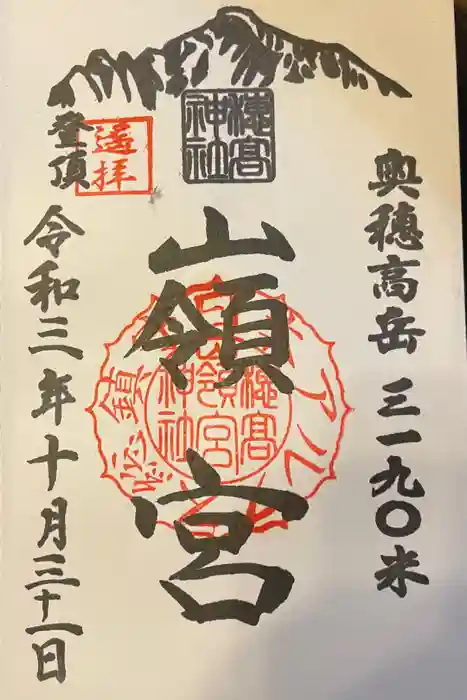 奥穂高岳 三一九〇米
穂高
神社
山嶺宮
穂高
嶺宮
神社
登頂
遥拝
令和三年十月三十一日